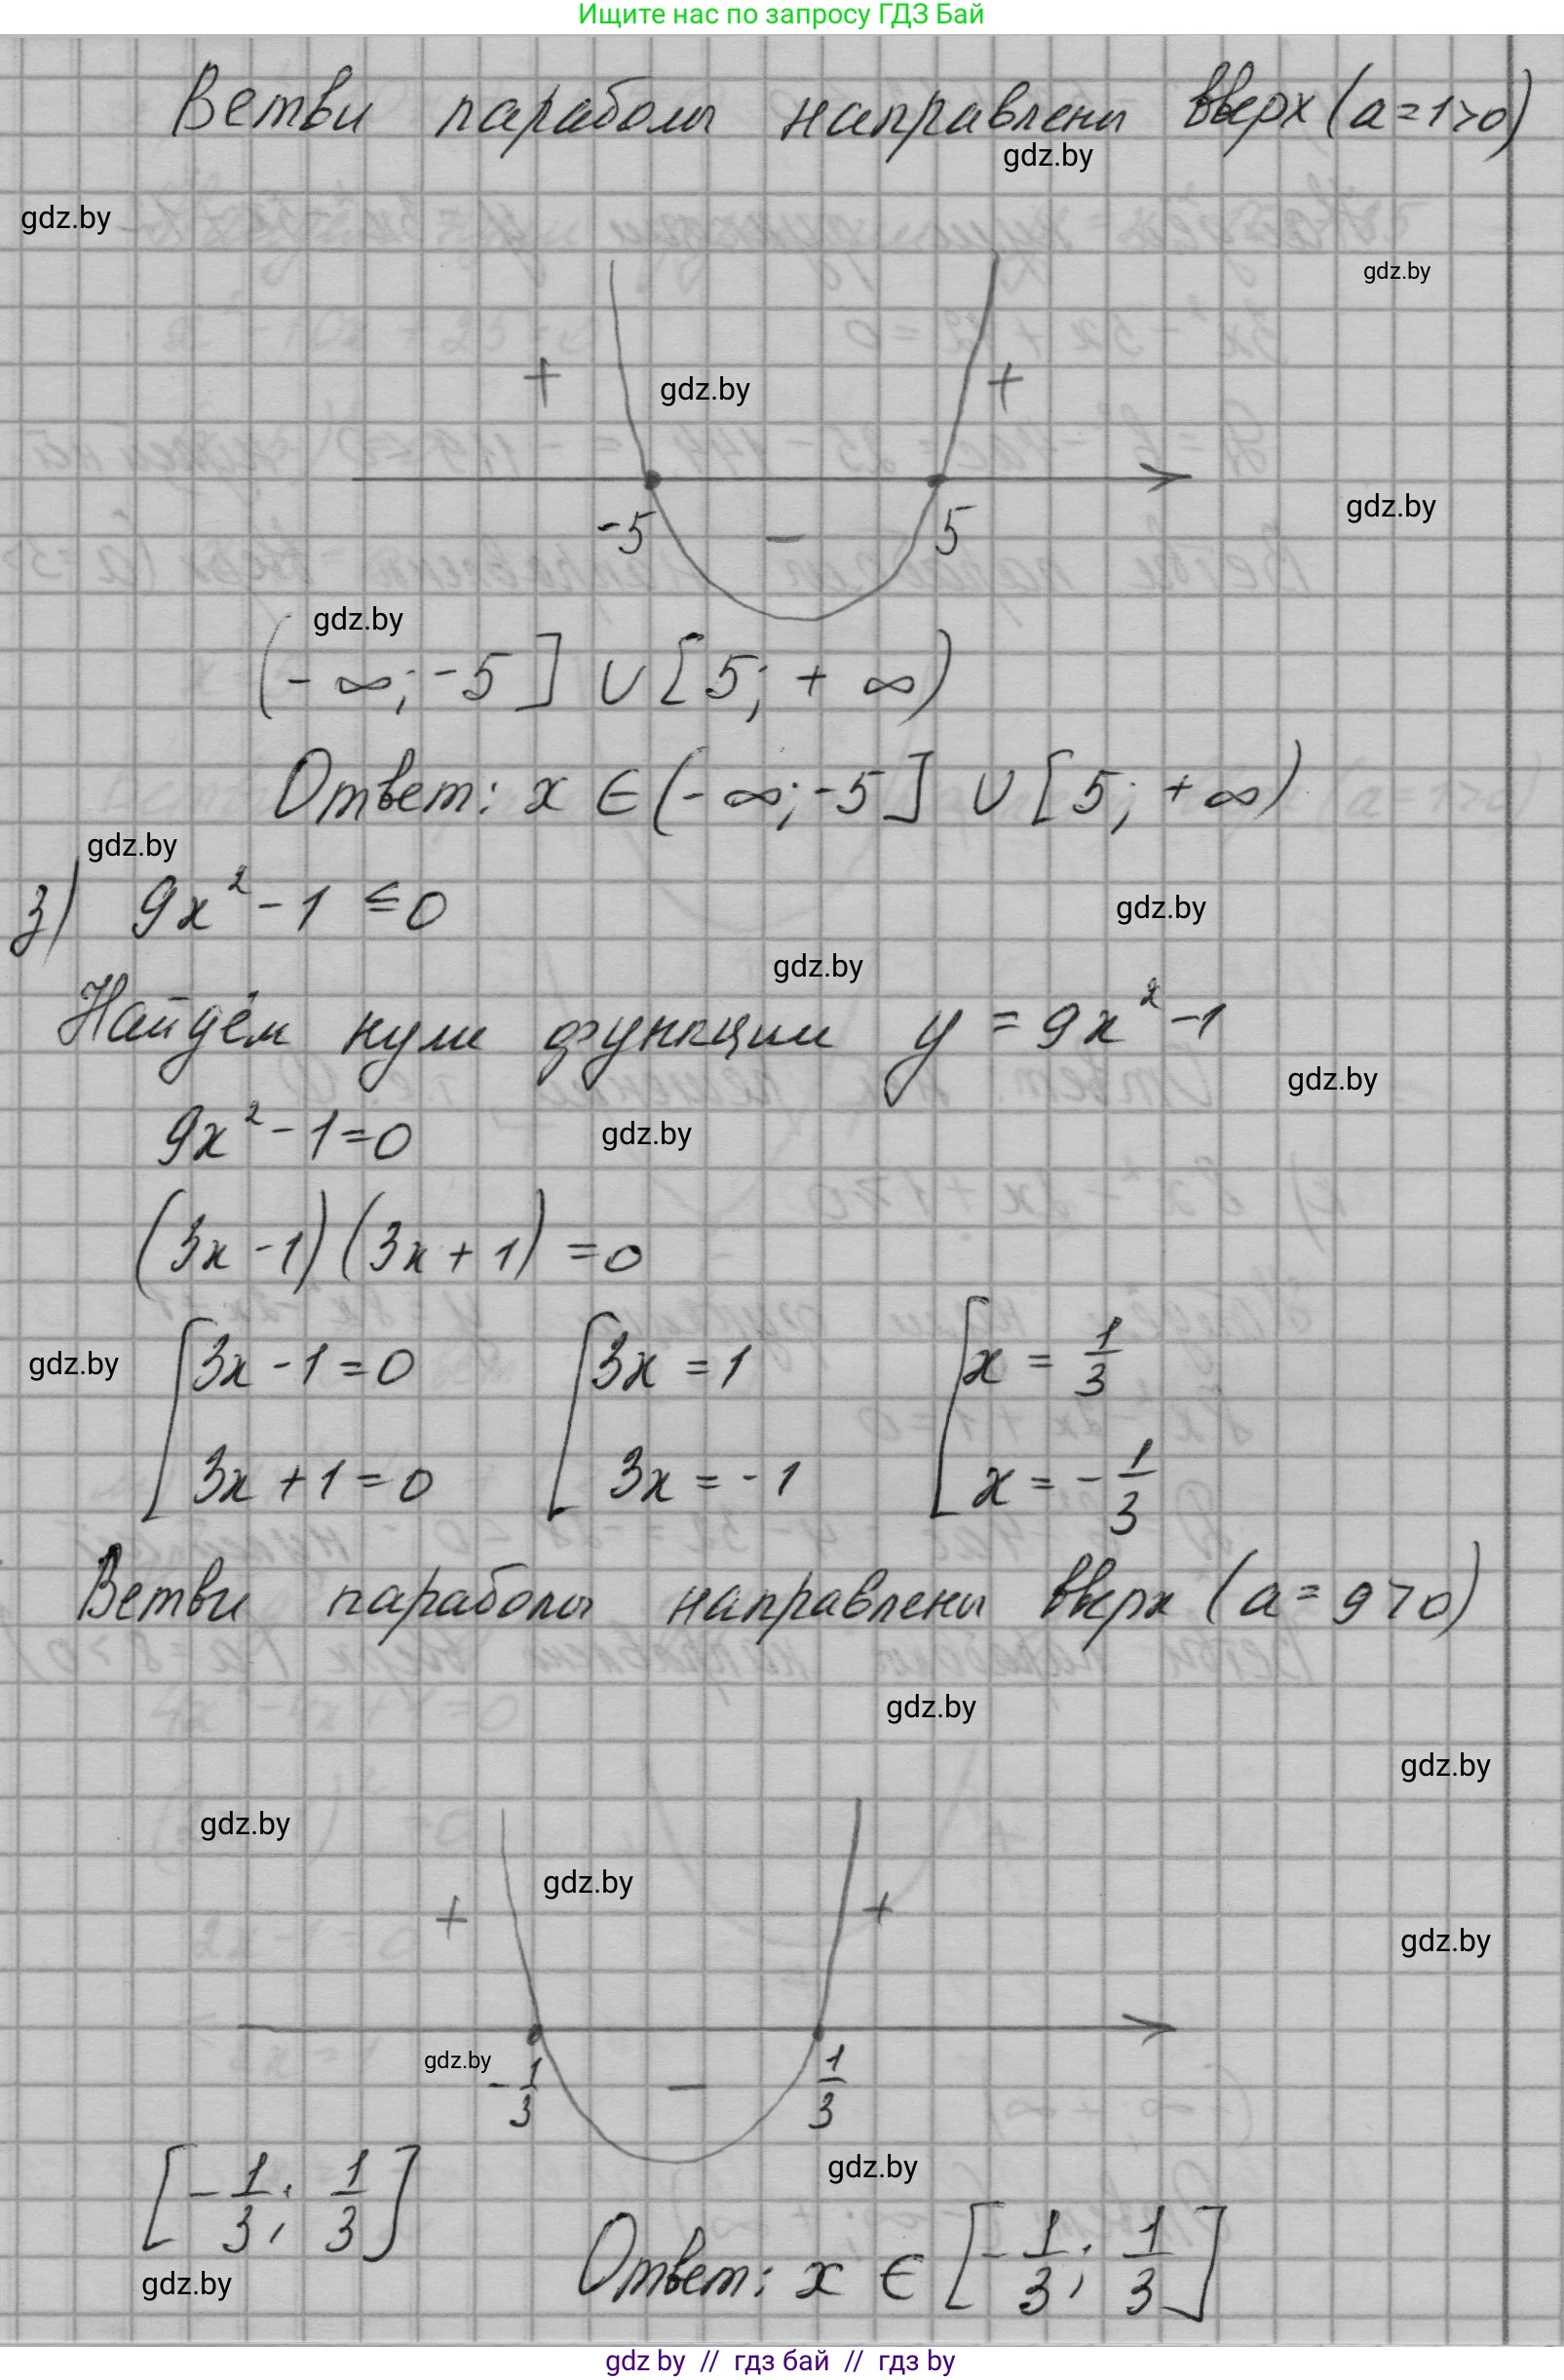 Ищите нас по запросу ГДЗ Бай
Ветви параболы направлены вверх (a=1>0)
gdz.by
gdz.by
gdz.by
+ gdz.by +
-5 - 5
gdz.by
gdz.by
(-∞; -5] ∪ [5; +∞)
Ответ: x ∈ (-∞; -5] ∪ [5; +∞)
gdz.by
з) 9x² - 1 ≤ 0
gdz.by
gdz.by
Найдём нули функции y = 9x² - 1
gdz.by
9x² - 1 = 0
gdz.by
(3x - 1)(3x + 1) = 0
gdz.by
[3x - 1 = 0 [3x = 1 [x = 1/3
3x + 1 = 0 3x = -1 x = -1/3
Ветви параболы направлены вверх (a = 9 > 0)
gdz.by
gdz.by
gdz.by
gdz.by
+ +
gdz.by
gdz.by
-1/3 - 1/3
gdz.by
[-1/3; 1/3]
gdz.by
Ответ: x ∈ [-1/3; 1/3]
gdz by // гдз бай // гдз by